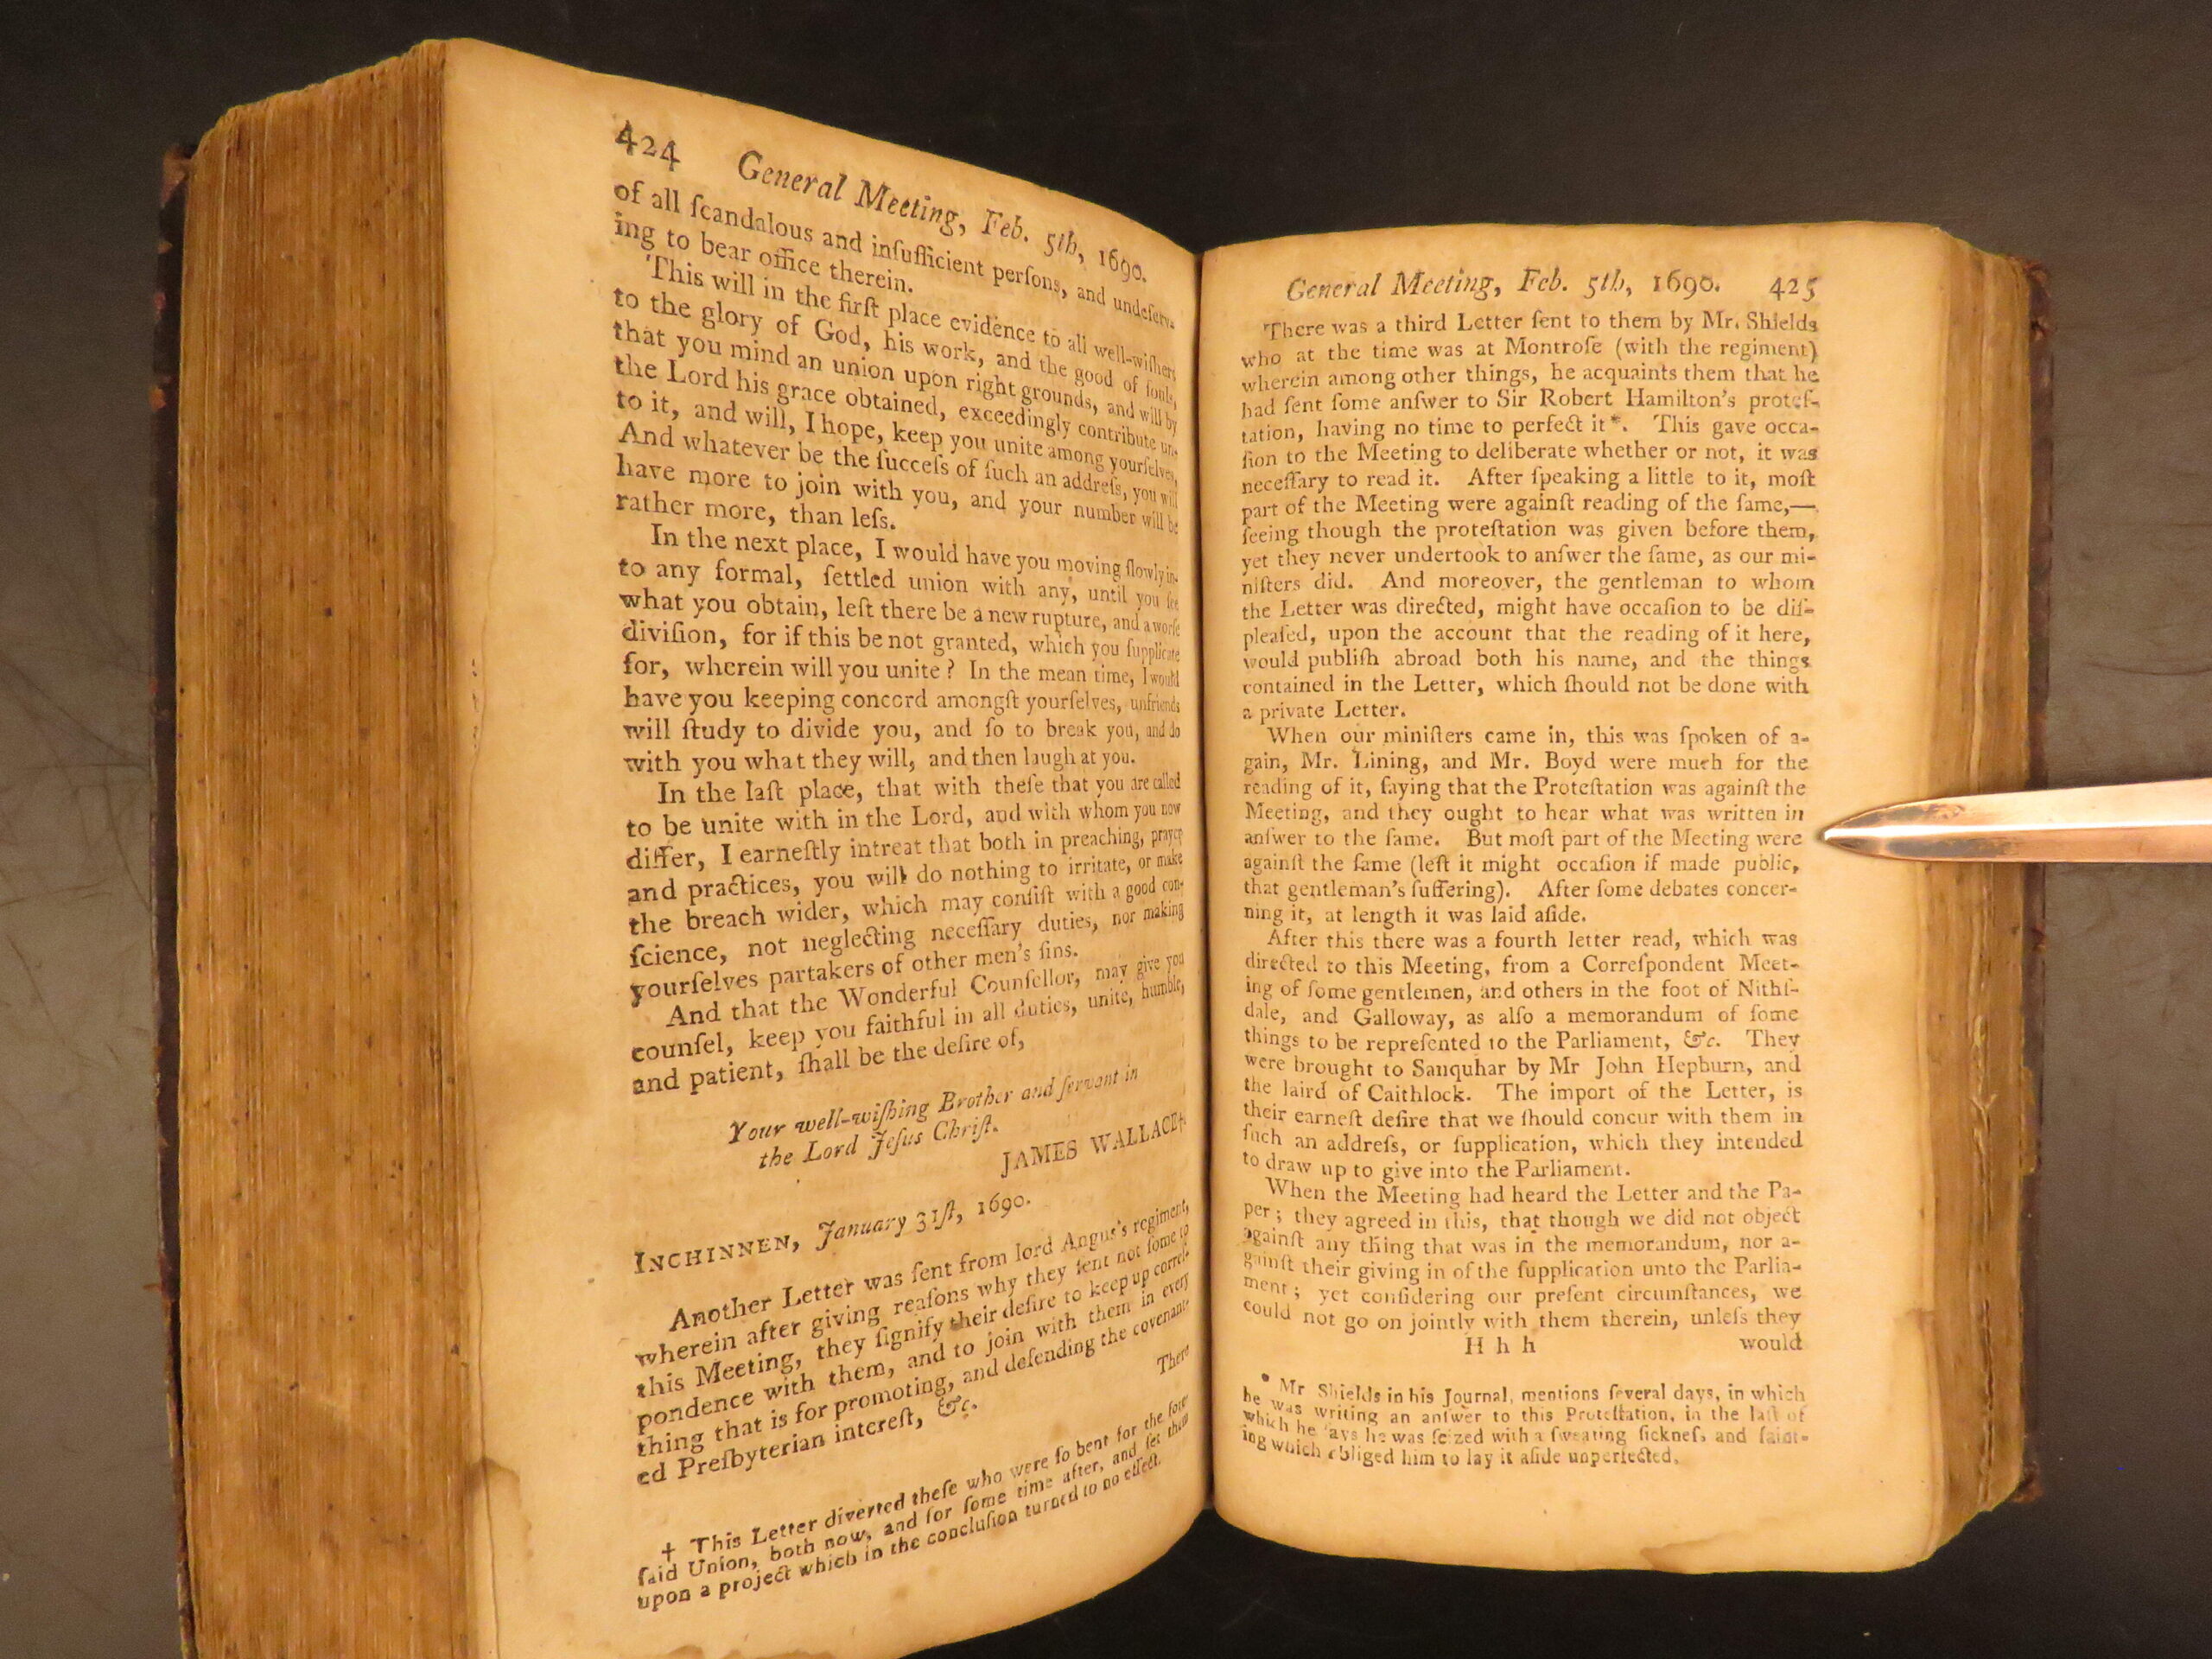 424 General Meeting, Feb. 5th, 1690.
of all ſcandalous and inſufficient perſons, and undeſerv-
ing to bear office therein.
This will in the firſt place evidence to all well-wiſhers
to the glory of God, his work, and the good of ſouls,
that you mind an union upon right grounds, and will by
the Lord his grace obtained, exceedingly contribute un-
to it, and will, I hope, keep you unite among yourſelves,
And whatever be the ſucceſs of ſuch an addreſs, you will
have more to join with you, and your number will be
rather more, than leſs.
In the next place, I would have you moving ſlowly in-
to any formal, ſettled union with any, until you ſee
what you obtain, leſt there be a new rupture, and a worſe
diviſion, for if this be not granted, which you ſupplicate
for, wherein will you unite? In the mean time, I would
have you keeping concord amongſt yourſelves, unfriends
will ſtudy to divide you, and ſo to break you, and do
with you what they will, and then laugh at you.
In the laſt place, that with theſe that you are called
to be unite with in the Lord, and with whom you now
differ, I earneſtly intreat that both in preaching, prayer
and practices, you will do nothing to irritate, or make
the breach wider, which may conſiſt with a good con-
ſcience, not neglecting neceſſary duties, nor making
yourſelves partakers of other men's ſins.
And that the Wonderful Counſellor, may give you
counſel, keep you faithful in all duties, unite, humble,
and patient, ſhall be the deſire of,
Your well-wiſhing Brother and ſervant in
the Lord Jeſus Chriſt.
JAMES WALLACE†.
INCHINNEN, January 31ſt, 1690.
Another Letter was ſent from lord Angus's regiment,
wherein after giving reaſons why they ſent not ſome to
this Meeting, they ſignify their deſire to keep up correſ-
pondence with them, and to join with them in every
thing that is for promoting, and defending the covenant-
ed Preſbyterian intereſt, &c.
There
† This Letter diverted theſe who were ſo bent for the fore-
ſaid Union, both now, and for ſome time after, and ſet them
upon a project which in the concluſion turned to no effect.
General Meeting, Feb. 5th, 1690. 425
There was a third Letter ſent to them by Mr. Shields
who at the time was at Montroſe (with the regiment)
wherein among other things, he acquaints them that he
had ſent ſome anſwer to Sir Robert Hamilton's proteſ-
tation, having no time to perfect it*. This gave occa-
ſion to the Meeting to deliberate whether or not, it was
neceſſary to read it. After ſpeaking a little to it, moſt
part of the Meeting were againſt reading of the ſame,—
ſeeing though the proteſtation was given before them,
yet they never undertook to anſwer the ſame, as our mi-
niſters did. And moreover, the gentleman to whom
the Letter was directed, might have occaſion to be diſ-
pleaſed, upon the account that the reading of it here,
would publiſh abroad both his name, and the things
contained in the Letter, which ſhould not be done with
a private Letter.
When our miniſters came in, this was ſpoken of a-
gain, Mr. Lining, and Mr. Boyd were much for the
reading of it, ſaying that the Proteſtation was againſt the
Meeting, and they ought to hear what was written in
anſwer to the ſame. But moſt part of the Meeting were
againſt the ſame (leſt it might occaſion if made public,
that gentleman's ſuffering). After ſome debates concer-
ning it, at length it was laid aſide.
After this there was a fourth letter read, which was
directed to this Meeting, from a Correſpondent Meet-
ing of ſome gentlemen, and others in the foot of Nithſ-
dale, and Galloway, as alſo a memorandum of ſome
things to be repreſented to the Parliament, &c. They
were brought to Sanquhar by Mr John Hepburn, and
the laird of Caithlock. The import of the Letter, is
their earneſt deſire that we ſhould concur with them in
ſuch an addreſs, or ſupplication, which they intended
to draw up to give into the Parliament.
When the Meeting had heard the Letter and the Pa-
per; they agreed in this, that though we did not object
againſt any thing that was in the memorandum, nor a-
gainſt their giving in of the ſupplication unto the Parlia-
ment; yet conſidering our preſent circumſtances, we
could not go on jointly with them therein, unleſs they
H h h would
* Mr Shields in his Journal, mentions ſeveral days, in which
he was writing an anſwer to this Proteſtation, in the laſt of
which he ſays he was ſeized with a ſweating ſickneſs and faint-
ing which obliged him to lay it aſide unperfected.